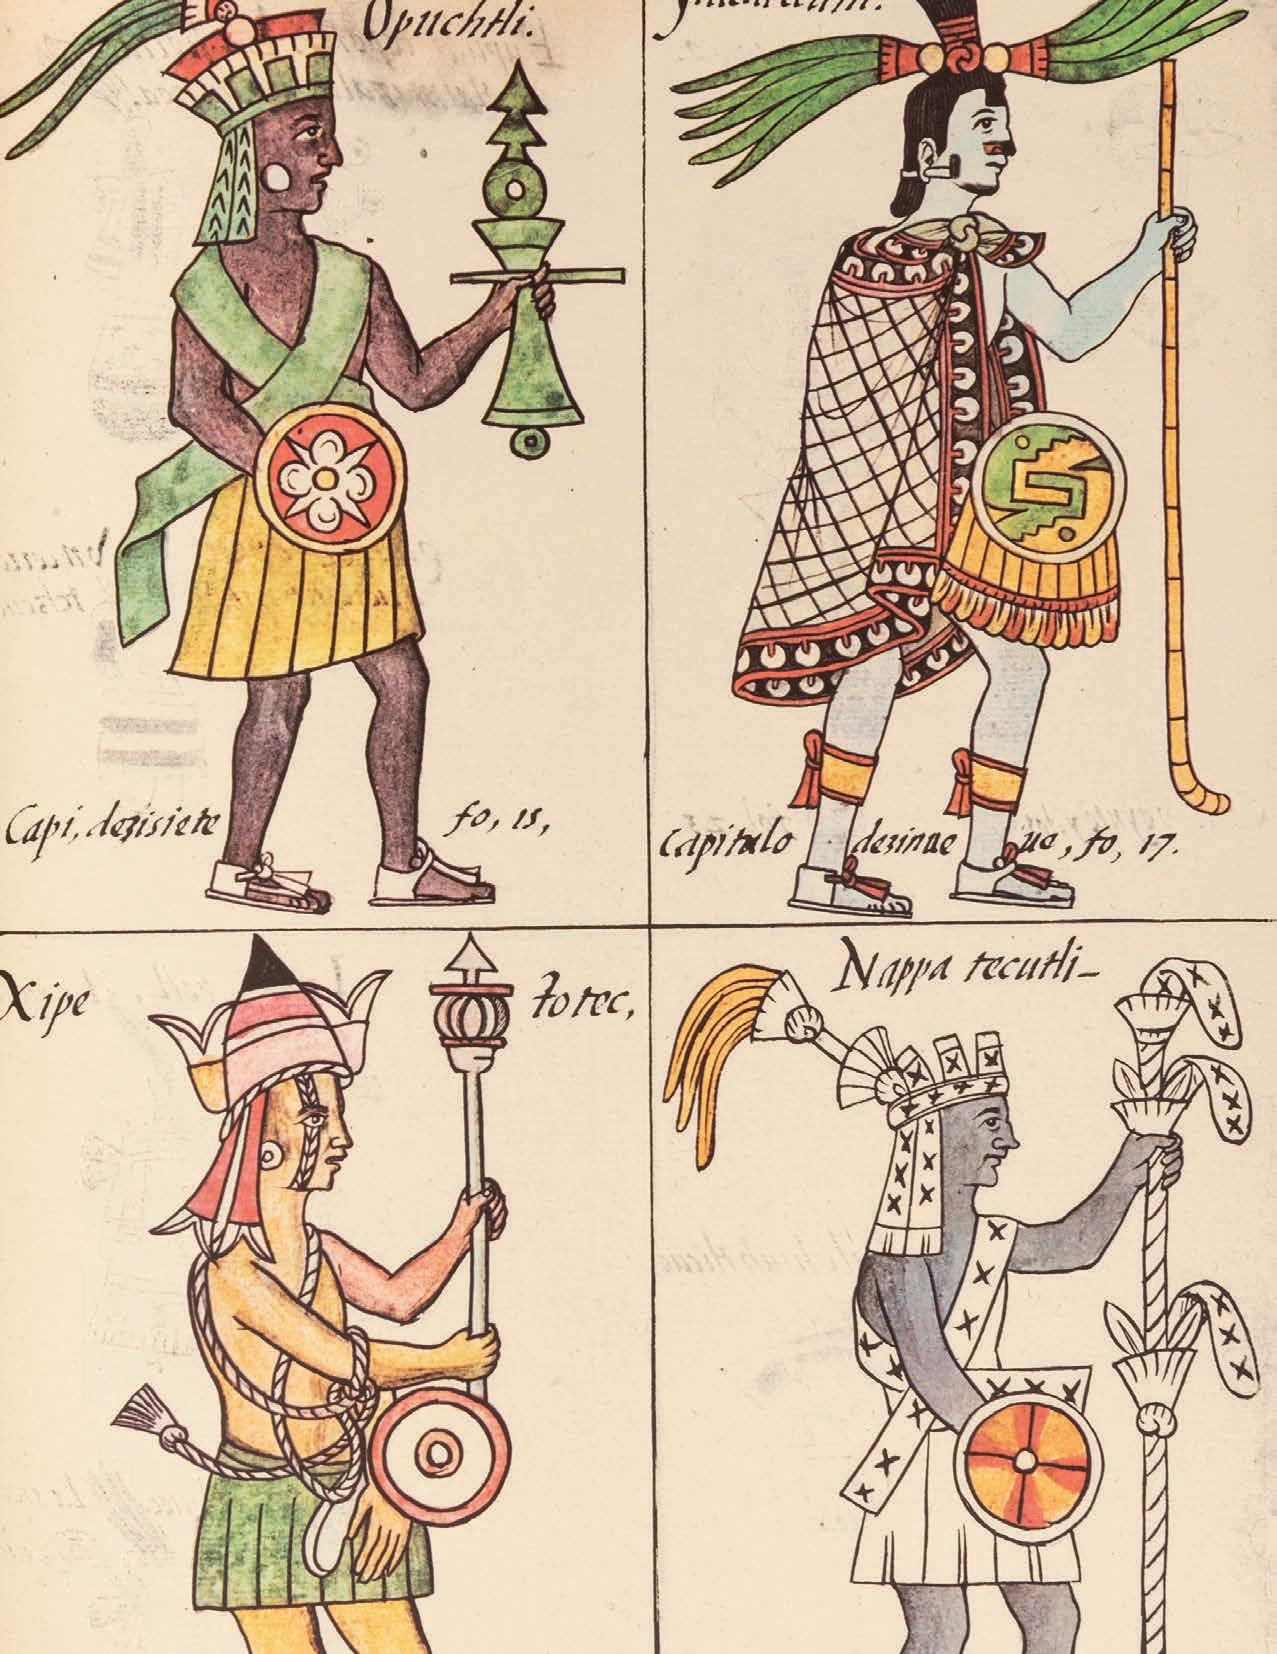 Opuchtli.
Capi, dezisiete fo, 15,
Capitulo dezinue ue, fo, 17.
Xipe totec,
Nappa tecutli-